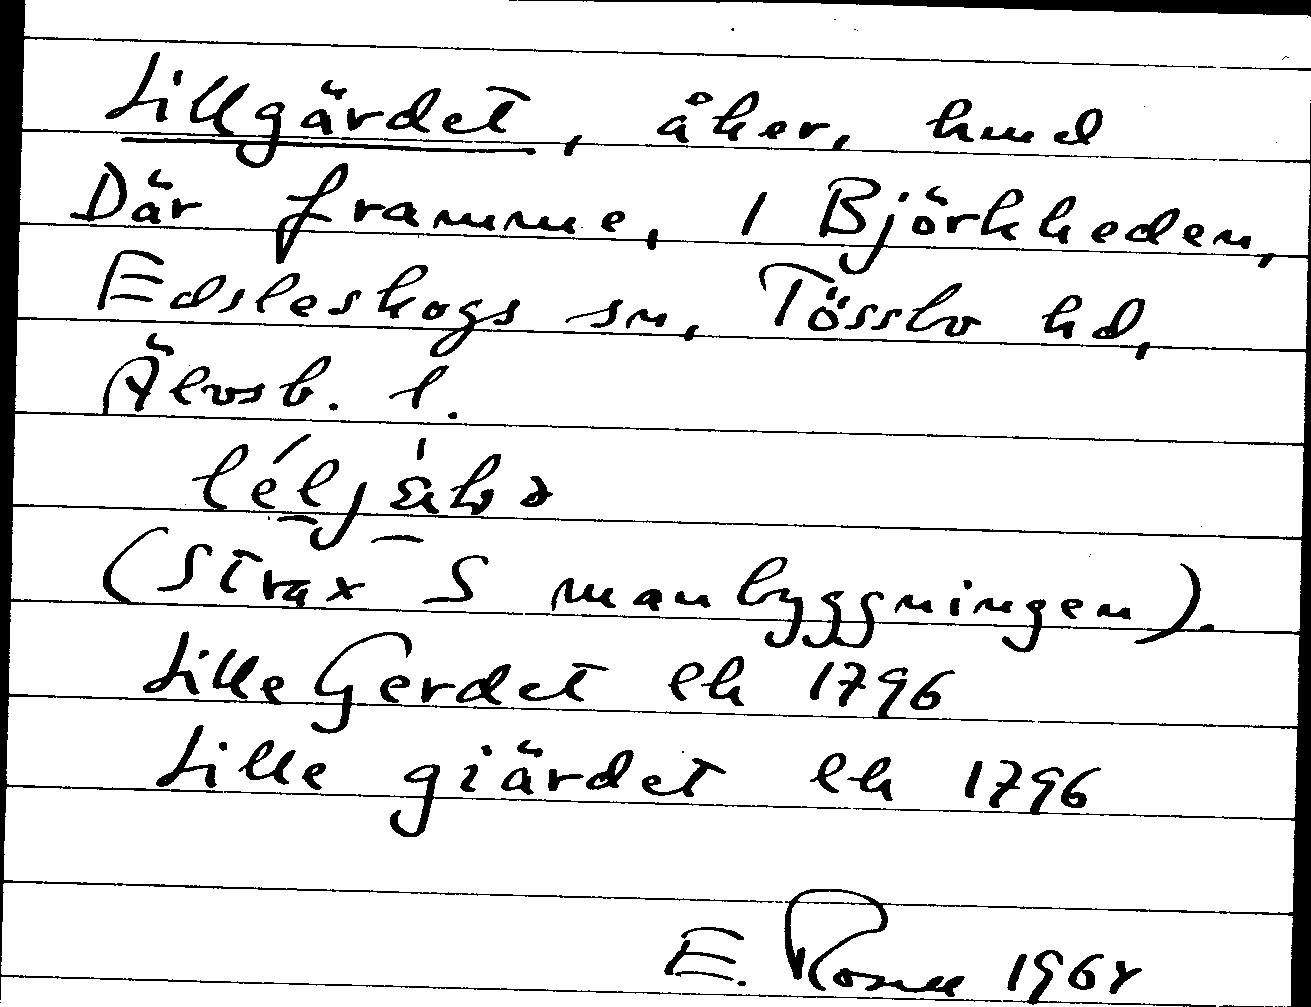 Lillgärdet, åker, hmd
Där framme, 1 Björkheden,
Edsleskogs sn, Tössbo hd,
Älvsb. l.
(Strax S manbyggningen).
Lille Gerdet lh 1796
Lille giärdet lh 1796
E. Rosell 1968